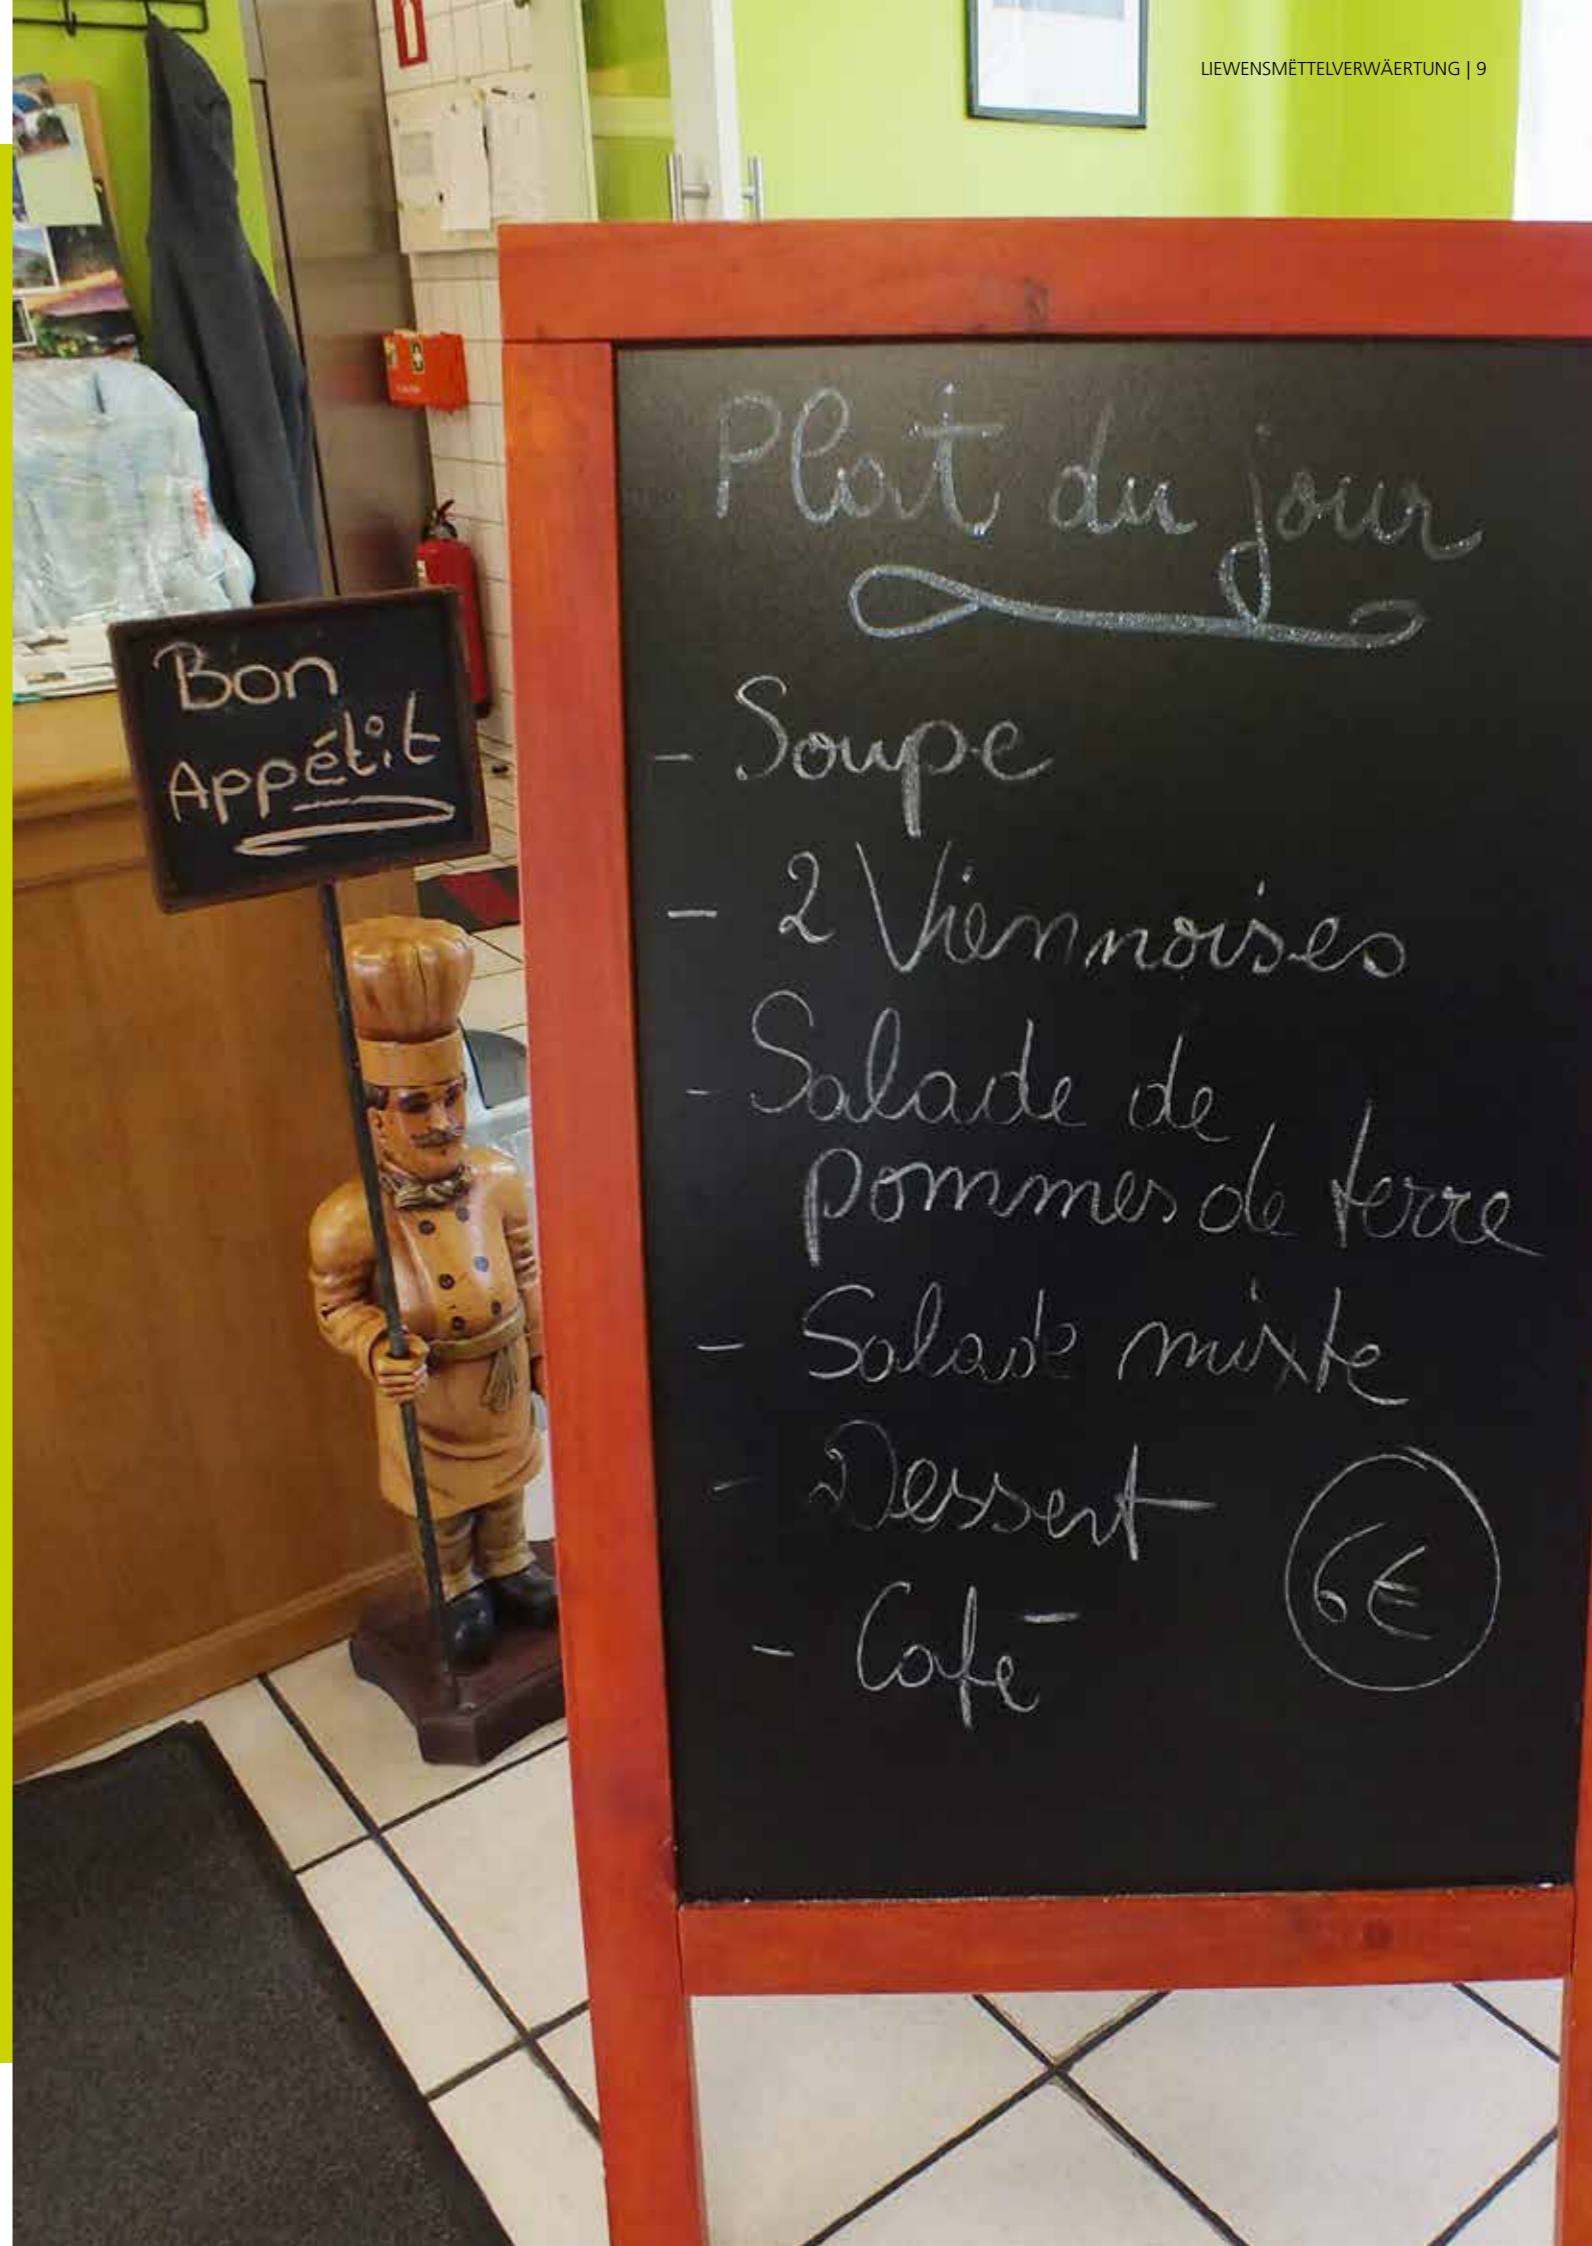 LIEWENSMËTTELVERWÄERTUNG | 9
Plat du jour
- Soupe
- 2 Viennoises
- Salade de
pommes de terre
- Salade mixte
- Dessert
- Café
6€
Bon
Appétit